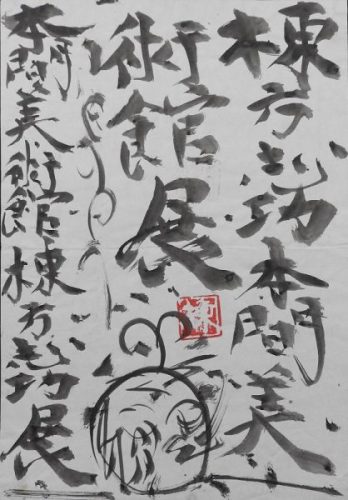 棟方志功本間美
術館展
本間美術館棟方志功展